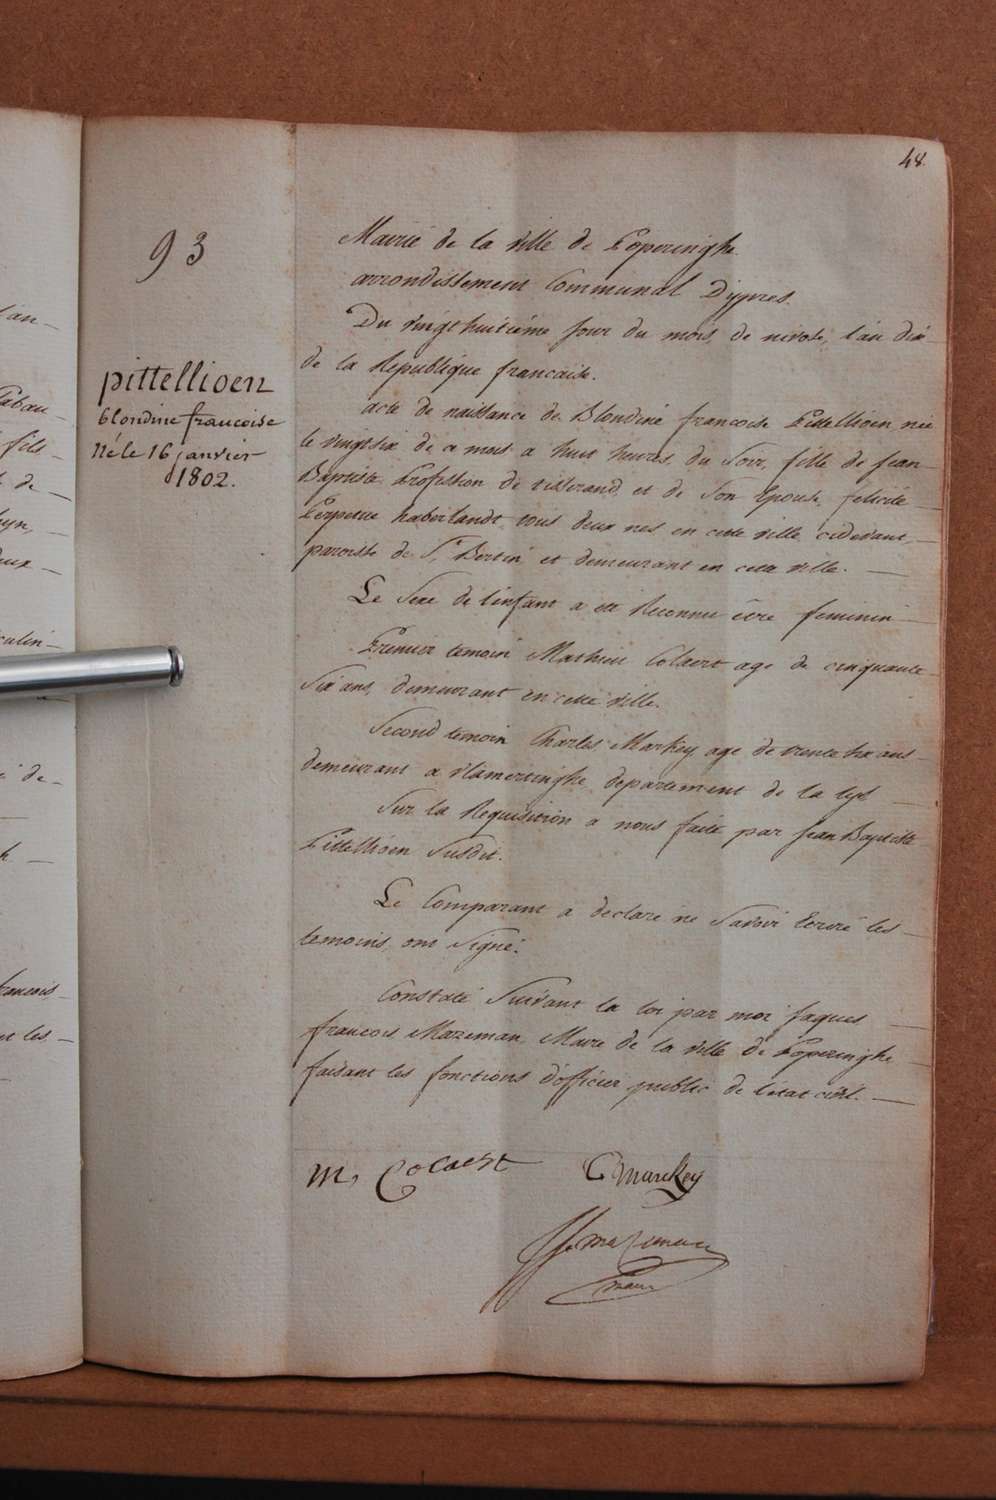 48
93
pittellioen
blondine francoise
Né le 16 janvier
1802.
Mairie de la ville de Poperinghe
arrondissement Communal Dijpres.
Du vingthuitiéme Jour du mois de nivose, l'an dix
de la Republique francaise.
acte de naissance de Blondine francoise Pittellioen née
le vingtsix de ce mois a huit heures du Soir, fille de Jean
Baptiste Profession de tisserand et de Son Epouse, felicité
Perpetue haberlandt tous deux nés en cette ville cidevant
paroisse de St. Bertin et demeurant en cette ville.
Le Sexe de l'enfant a eté Reconnu être feminin
Premier temoin Mathieu Colaert agé de cinquante
Six ans, demeurant en cette ville.
Second temoin Charles Markey age de trente six ans
demeurant a vlamertinghe departement de la lys
Sur la Requisition a nous faite par Jean Baptiste
Pittellioen Susdit.
Le Comparant a declaré ne Savoir Ecrire les
temoins ont Signé.
Constaté Suivant la loi par moi Jaques
francois Mazeman Maire de la ville de Poperinghe
faisant les fonctions d'officier public de l'etat civil.
M, Colaert
C Marckey
JF Mazeman
maire
lan
fils
de
eux
culin
de
francois
nt les